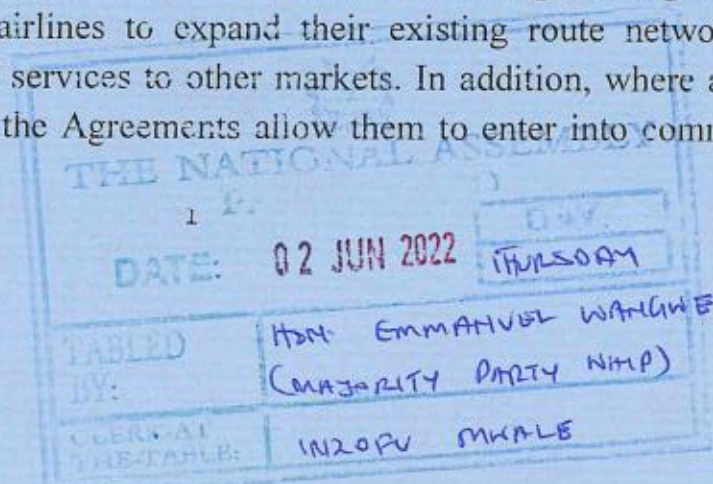 airlines to expand their existing route netwo
services to other markets. In addition, where a
the Agreements allow them to enter into comm
THE NATIONAL ASSEMBLY
1
DAY
DATE: 02 JUN 2022 THURSDAY
TABLED HON. EMMANUEL WANGWE
BY: (MAJORITY PARTY WHIP)
CLERK-AT
THE-TABLE: INZOFU MWALE